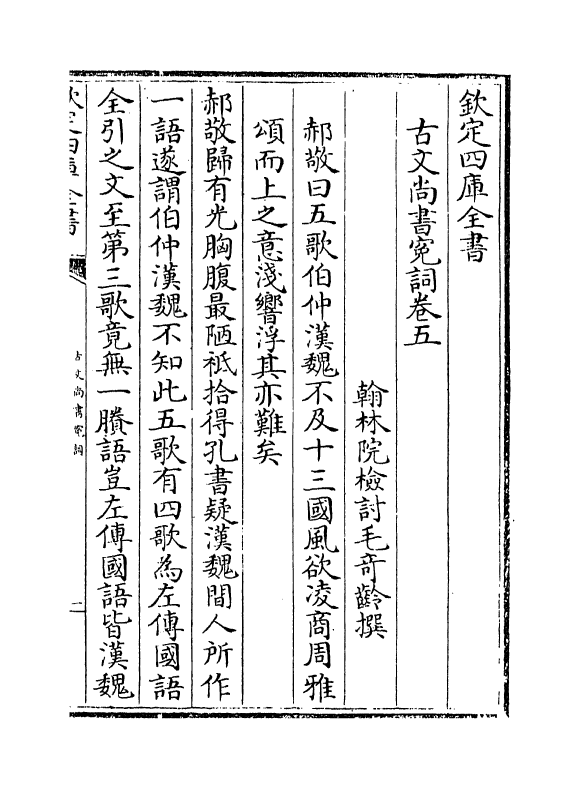 欽定四庫全書
古文尚書冤詞卷五
翰林院檢討毛奇齡撰
郝敬曰五歌伯仲漢魏不及十三國風欲凌商周雅
頌而上之意淺響浮其亦難矣
郝敬歸有光胸腹最陋祇拾得孔書疑漢魏間人所作
一語遂謂伯仲漢魏不知此五歌有四歌為左傳國語
全引之文至第三歌竟無一賸語豈左傳國語皆漢魏
欽定四庫全書
古文尚書冤詞
一